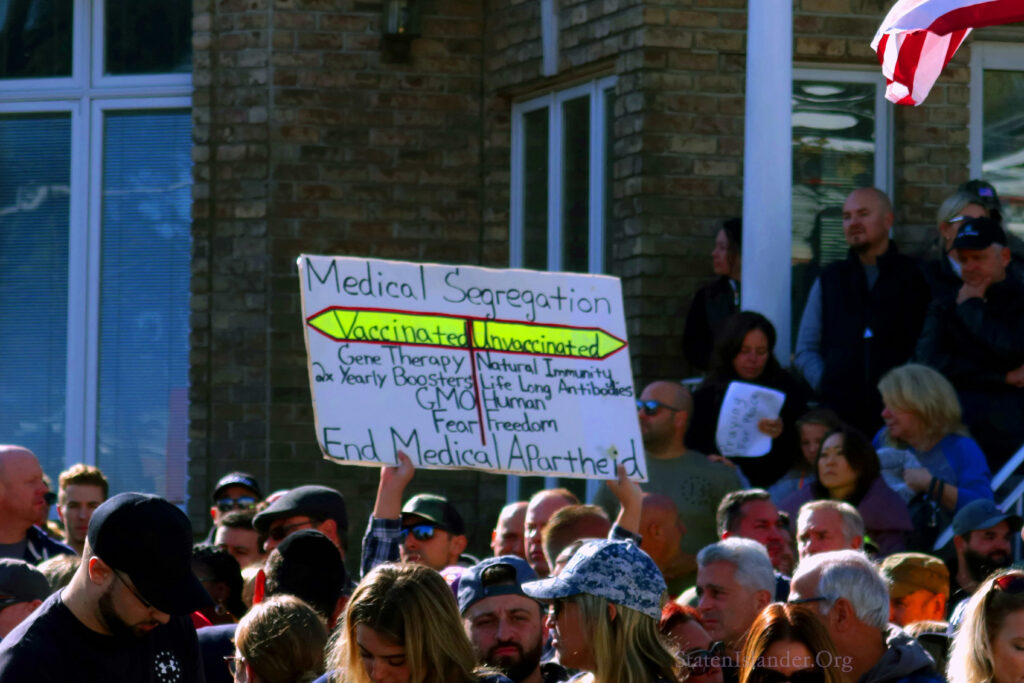 Medical Segregation
Vaccinated Unvaccinated
Gene Therapy Natural Immunity
2x Yearly Boosters Life Long Antibodies
GMO Human
Fear Freedom
End Medical Apartheid
Praying
For Peace
StatenIslander.Org